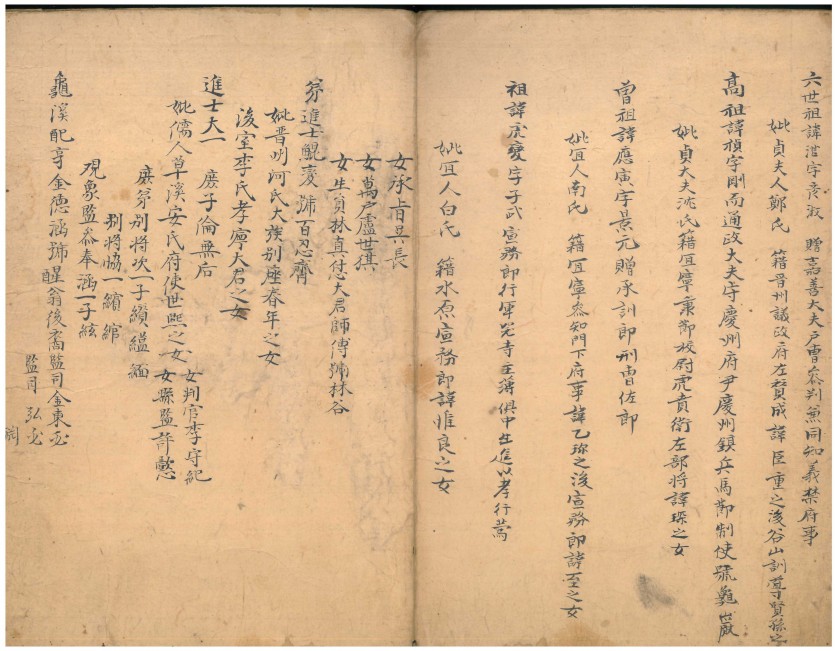 六世祖諱湛字彦淑 贈嘉善大夫戶曹參判兼同知義禁府事
妣貞夫人鄭氏 籍晋州議政府左贊成諱臣重之後谷山訓導賢孫之
高祖諱楨字剛而通政大夫守慶州府尹慶州鎮兵馬節制使號龜巖
妣貞夫人沈氏籍宜寧秉節校尉虎賁衛左部將諱琛之女
曾祖諱應寅字景元贈承訓郎刑曹佐郎
妣宜人南氏 籍宜寧參知門下府事諱乙珍之後宣務郎諱至之女
祖諱虎變字子武宣務郎行軍器寺主簿俱中生進以孝行薦
妣宜人白氏 籍水原宣務郎諱惟良之女
女承旨吳長
女萬戶盧世
女生員林真怤大君師傅號林谷
弟進士鯤變號百忍齋
妣晋州河氏大護別座春年之女
後室李氏孝寧大君之女
進士大一 庶子倫無后
妣孺人草溪安氏府使世熙之女 女判官李守紀
女縣監許
庶弟別將次一子纘縕緬
別將協一纘綰
砚象監參奉涵一子絃
龜溪配享金德涵號醒翁後裔監司金東
監司 弘